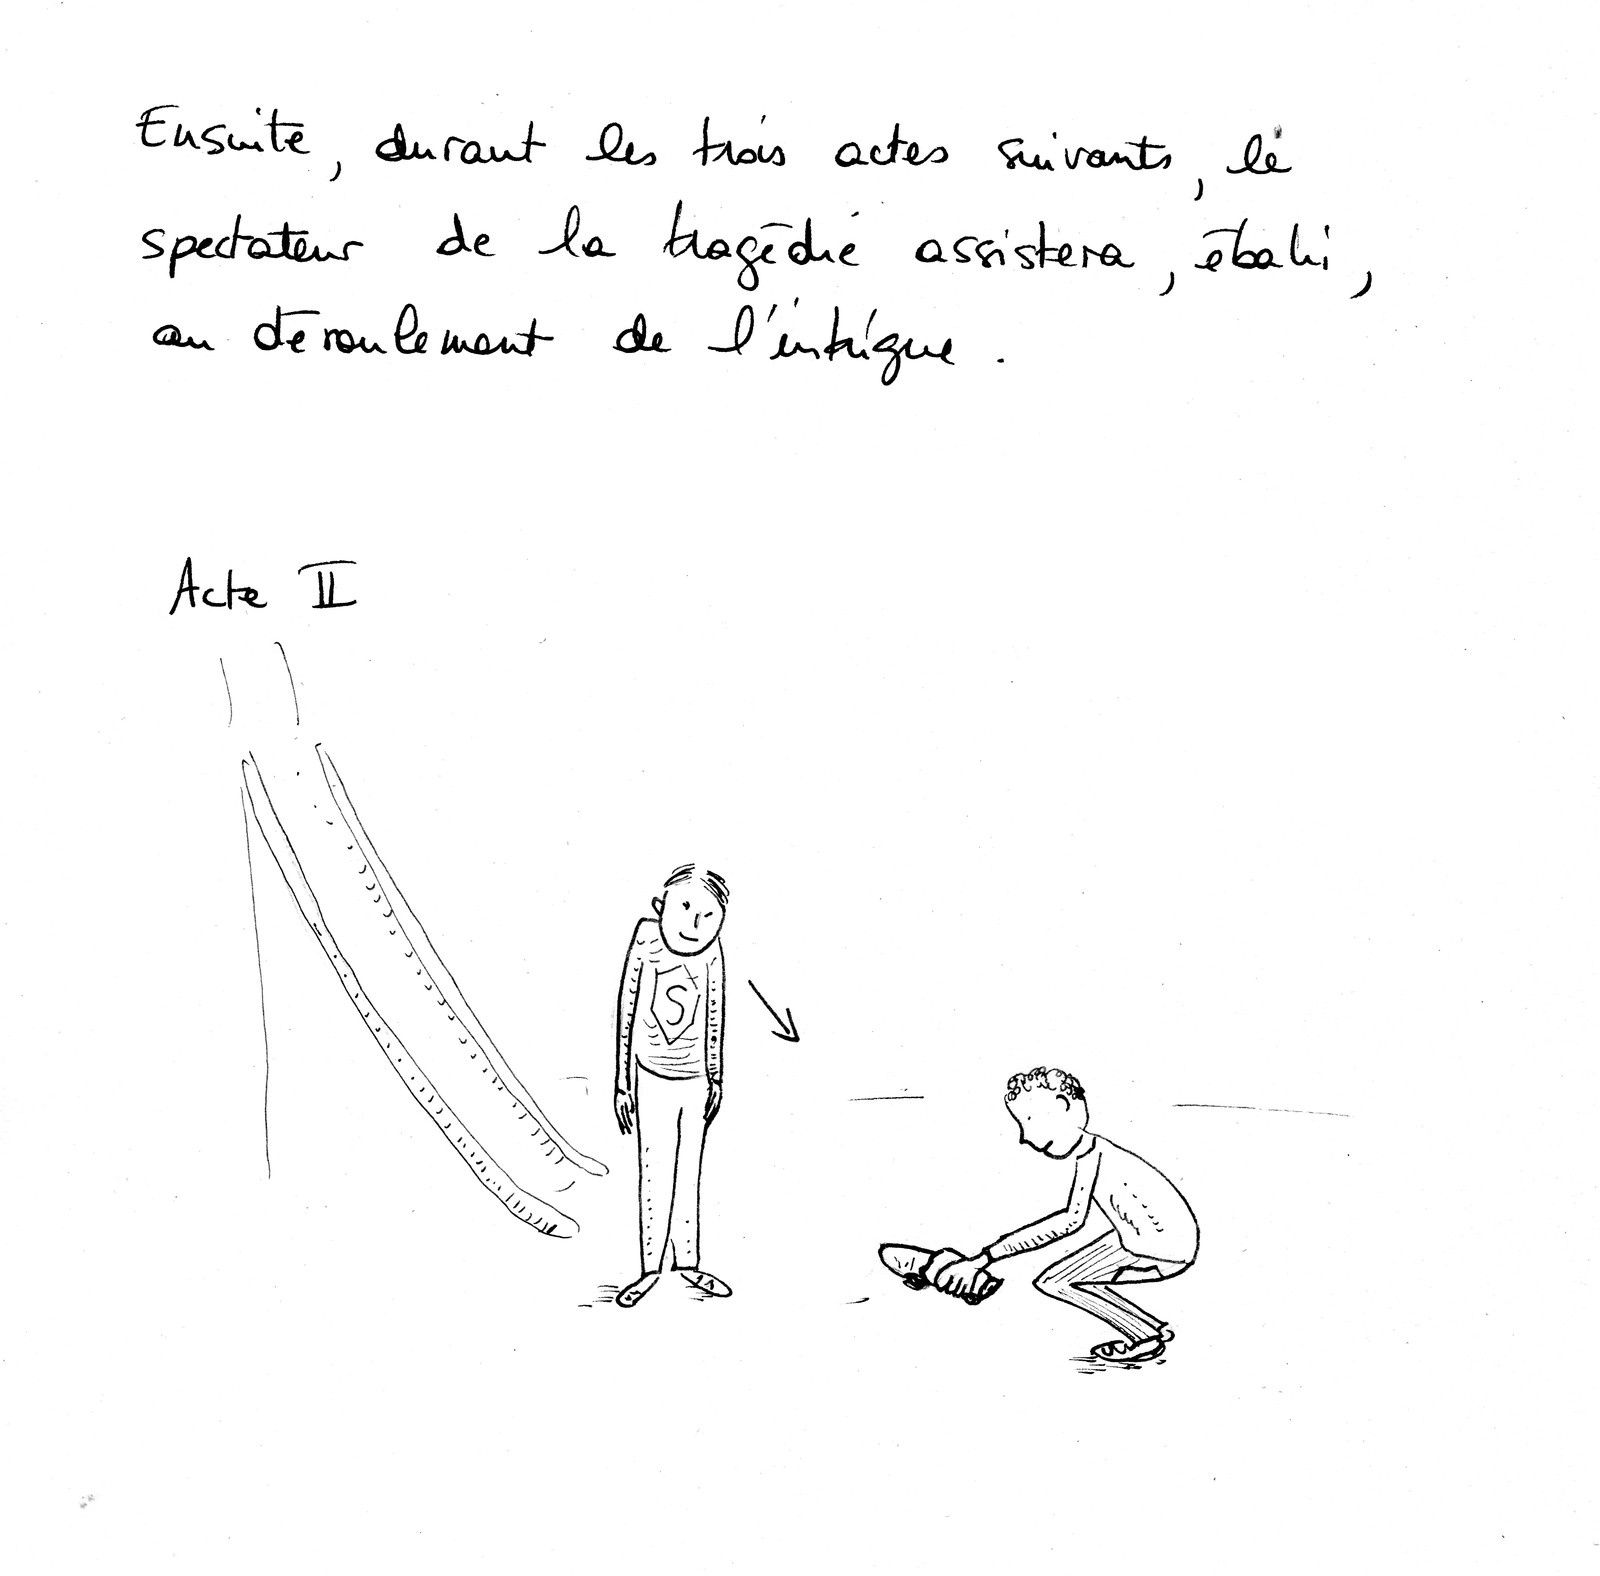 Ensuite, durant les trois actes suivants, le
spectateur de la tragédie assistera, ébahi,
au déroulement de l'intrigue.
Acte II
S